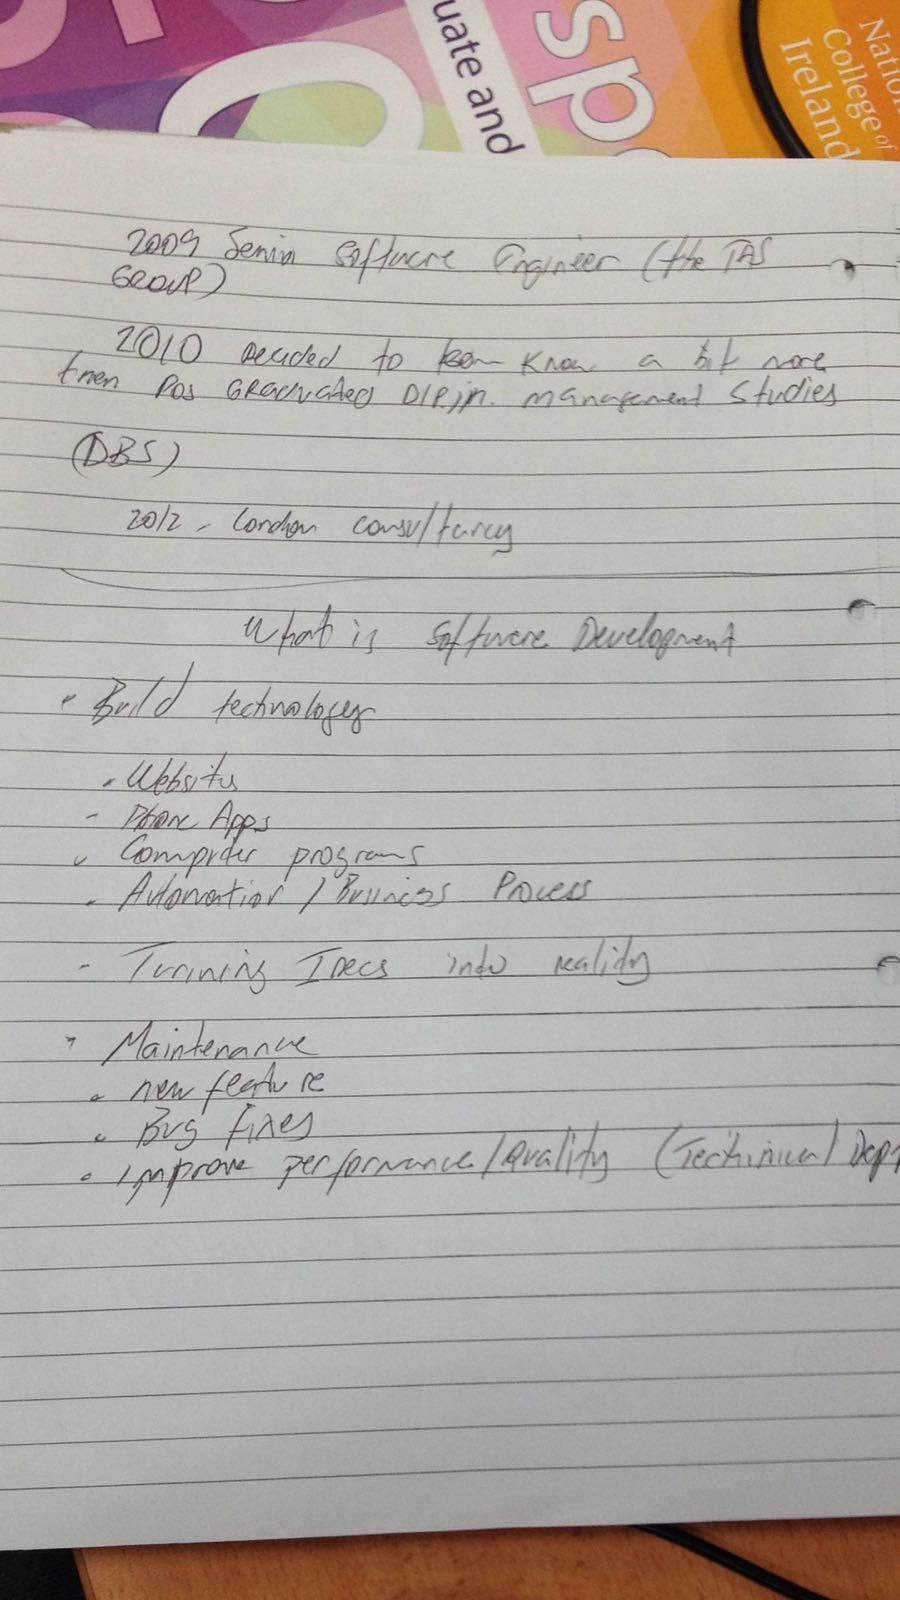 uate and
sp
National
College of
Ireland
2009 Senior Software Engineer (the TAS
GROUP)
2010 Decided to Know a bit more
then Pos GRaduated DIP.in. management Studies
(DBS)
2012 - London consultancy
What is Software Development
• Build technologey
• Websites
- Phone Apps
• Computer programs
• Automation / Business Process
- Turining Ideas into reality
• Maintenance
• new feature
• Bug fixes
• Improve performance/Quality (Techinical Dept